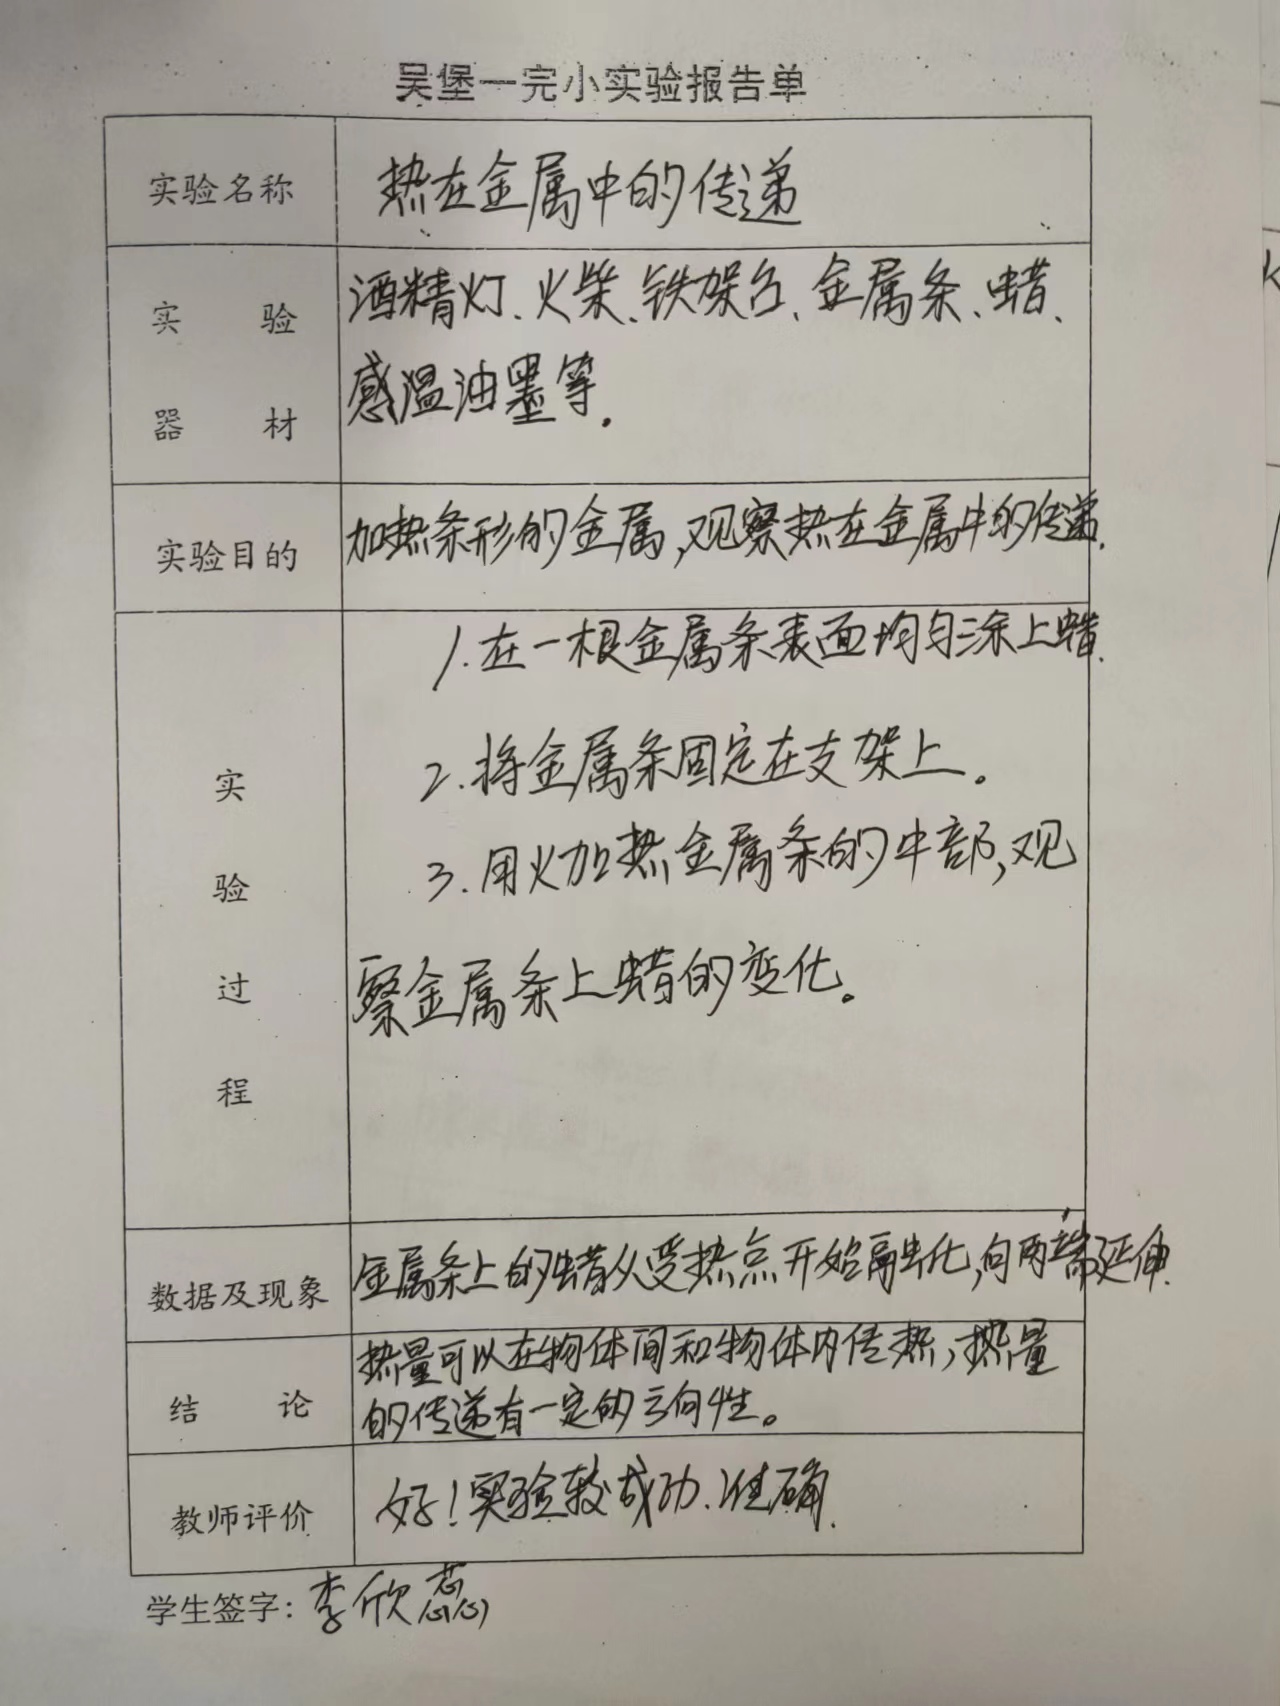 吴堡一完小实验报告单
实验名称
热在金属中的传递
实验
器材
酒精灯、火柴、铁架台、金属条、蜡、
感温油墨等.
实验目的
加热条形的金属,观察热在金属中的传递.
实验过程
1.在一根金属条表面均匀涂上蜡.
2.将金属条固定在支架上。
3.用火加热金属条的中部,观
察金属条上蜡的变化。
数据及现象
金属条上的蜡从受热点开始融化,向两端延伸.
结论
热量可以在物体间和物体内传热,热量
的传递有一定的方向性。
教师评价
好!实验较成功、准确.
学生签字:李欣蕊